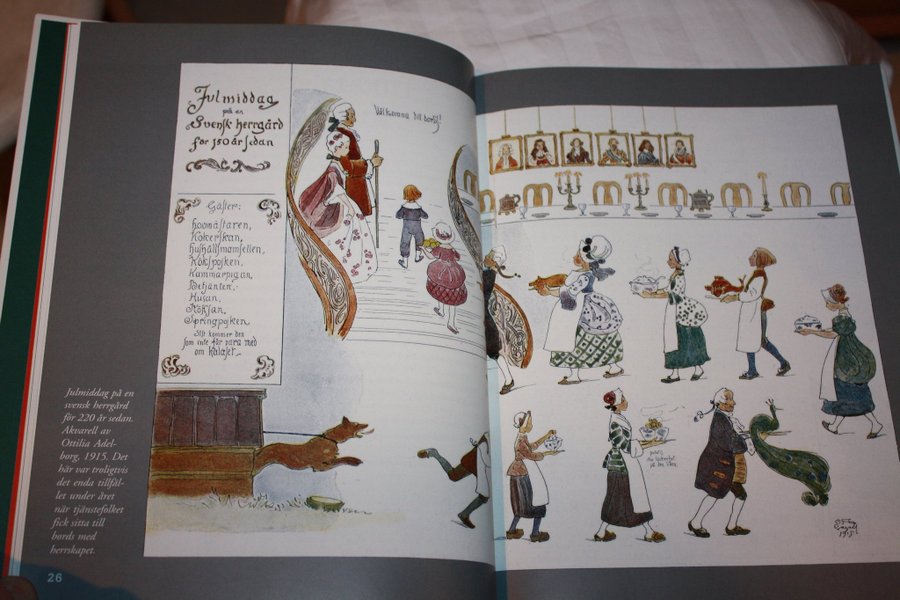 Julmiddag
på en
Svensk herrgård
för 150 år sedan
Gäster:
hovmästaren,
Kokerskan,
hushållsmamsellen,
Kökspojken,
Kammarpigan,
Betjänten,
Husan,
Köksan,
Springpojken
Sist kommer den
som inte får vara med
om kalaset.
Välkomna till bords!
Julmiddag på en
svensk herrgård
för 220 år sedan.
Akvarell av
Ottilia Adel-
borg, 1915. Det
här var troligtvis
det enda tillfäl-
let under året
när tjänstefolket
fick sitta till
bords med
herrskapet.
26
1915